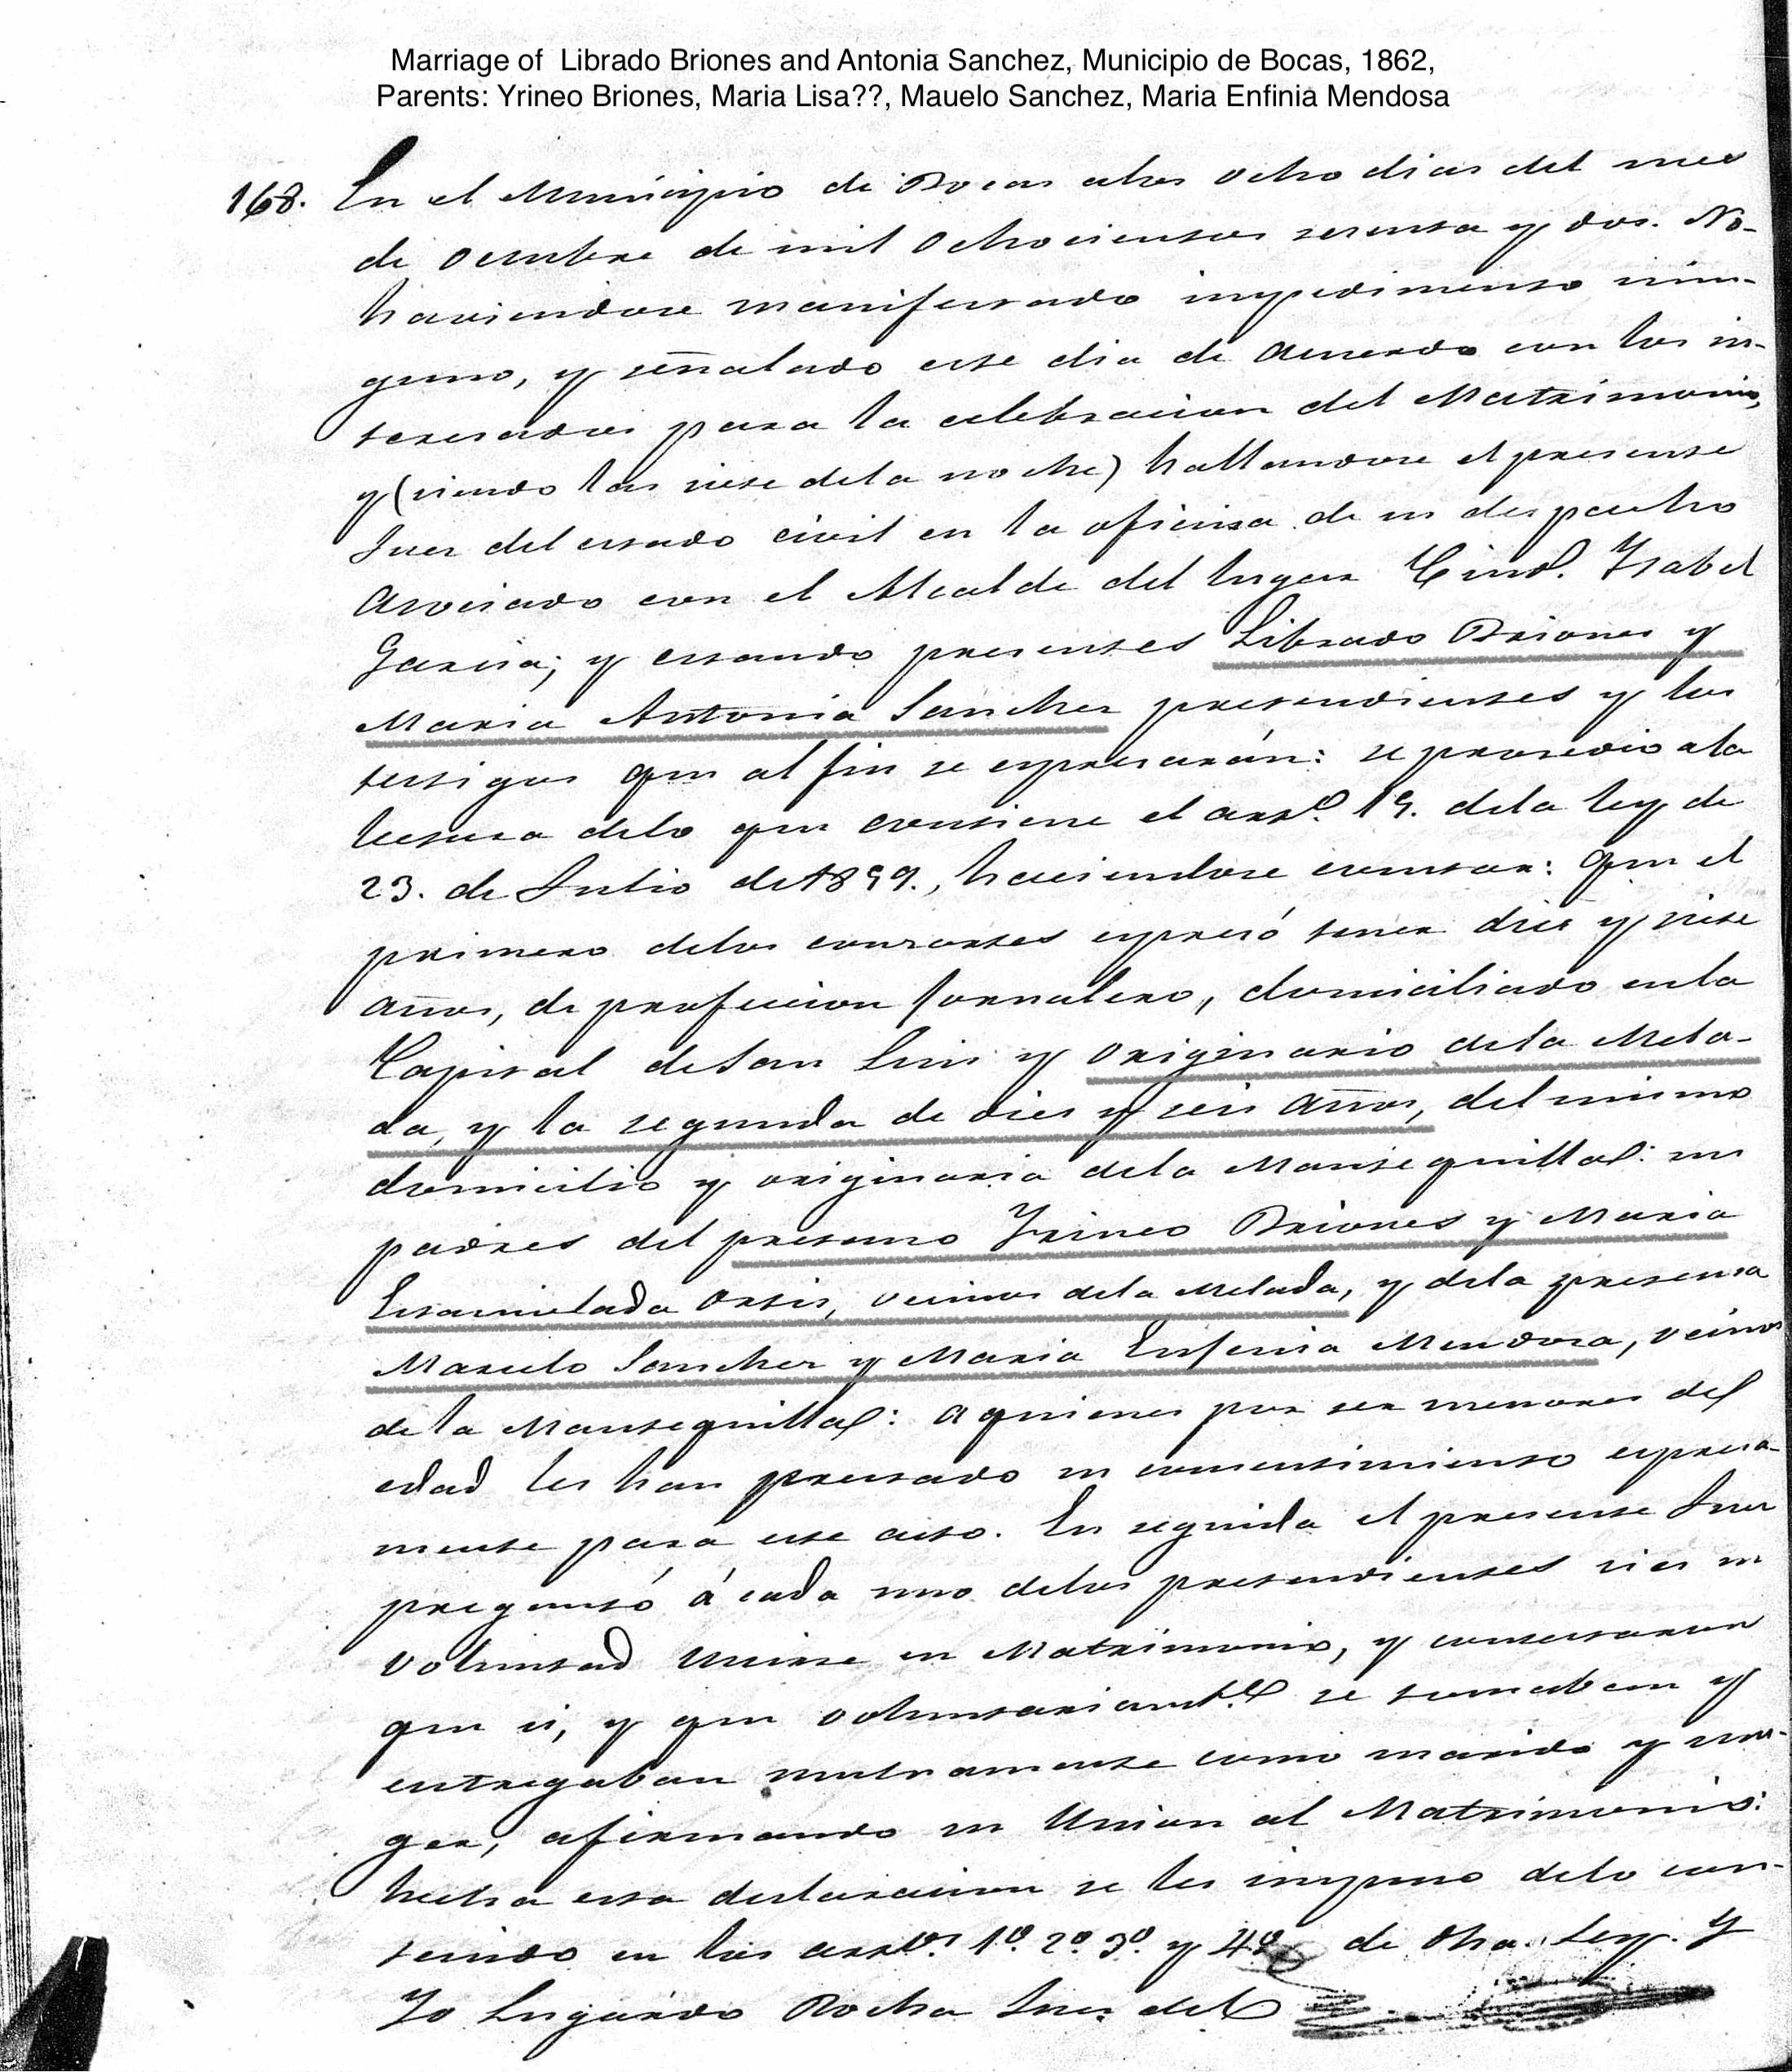 Marriage of Librado Briones and Antonia Sanchez, Municipio de Bocas, 1862,
Parents: Yrineo Briones, Maria Lisa??, Mauelo Sanchez, Maria Enfinia Mendosa
168. En el Municipio de Bocas alos ocho dias del mes
de Octubre de mil ochocientos sesenta y dos. No-
haviendose manifestado impedimento nin-
guno, y señalado este dia de acuerdo con los in-
teresados para la celebracion del Matrimonio,
y (siendo las siete dela noche) hallandose el presente
Jues del estado civil en la oficina de su despacho
Asociado con el Alcalde del lugar Ciud. Ysabel
Garcia; y estando presentes Librado Briones y
Maria Antonia Sanches pretendientes y los
testigos que al fin se espresarán: se prosedio ala
lectura delo que contiene el arto. 15. dela ley de
23. de Julio de 1859., haciendose constar: que el
primero delos consortes espresó tener dies y siete
años, de profecion Jornalero, domiciliado enla
Capital de San Luis y originario dela Mela-
da, y la segunda de dies y seis años, del mismo
domicilio y originaria dela Mantequilla: sus
padres del pretenso Yrineo Briones y Maria
Escaniulada Ortis, vecinos dela Melada, y dela pretensa
Marcelo Sanches y Maria Eufenia Mendosa, vecinos
de la Mantequilla: a quienes por ser menores de
edad les han prestado su consentimiento espresa-
mente para este acto. En seguida el presente Jues
preguntó á cada uno delos pretendientes si es su
voluntad unirse en Matrimonio, y contestaron
que si, y que voluntariamte. se tomaban y
entregaban mutuamente como marido y mu-
ger, afirmando su Union al Matrimonio:
hecha esta declaracion se les impuso delo con-
tenido en los artos. 1º. 2º. 3º. y 4º. de dha. Ley. Y
Yo Lugardo Rocha Jues del